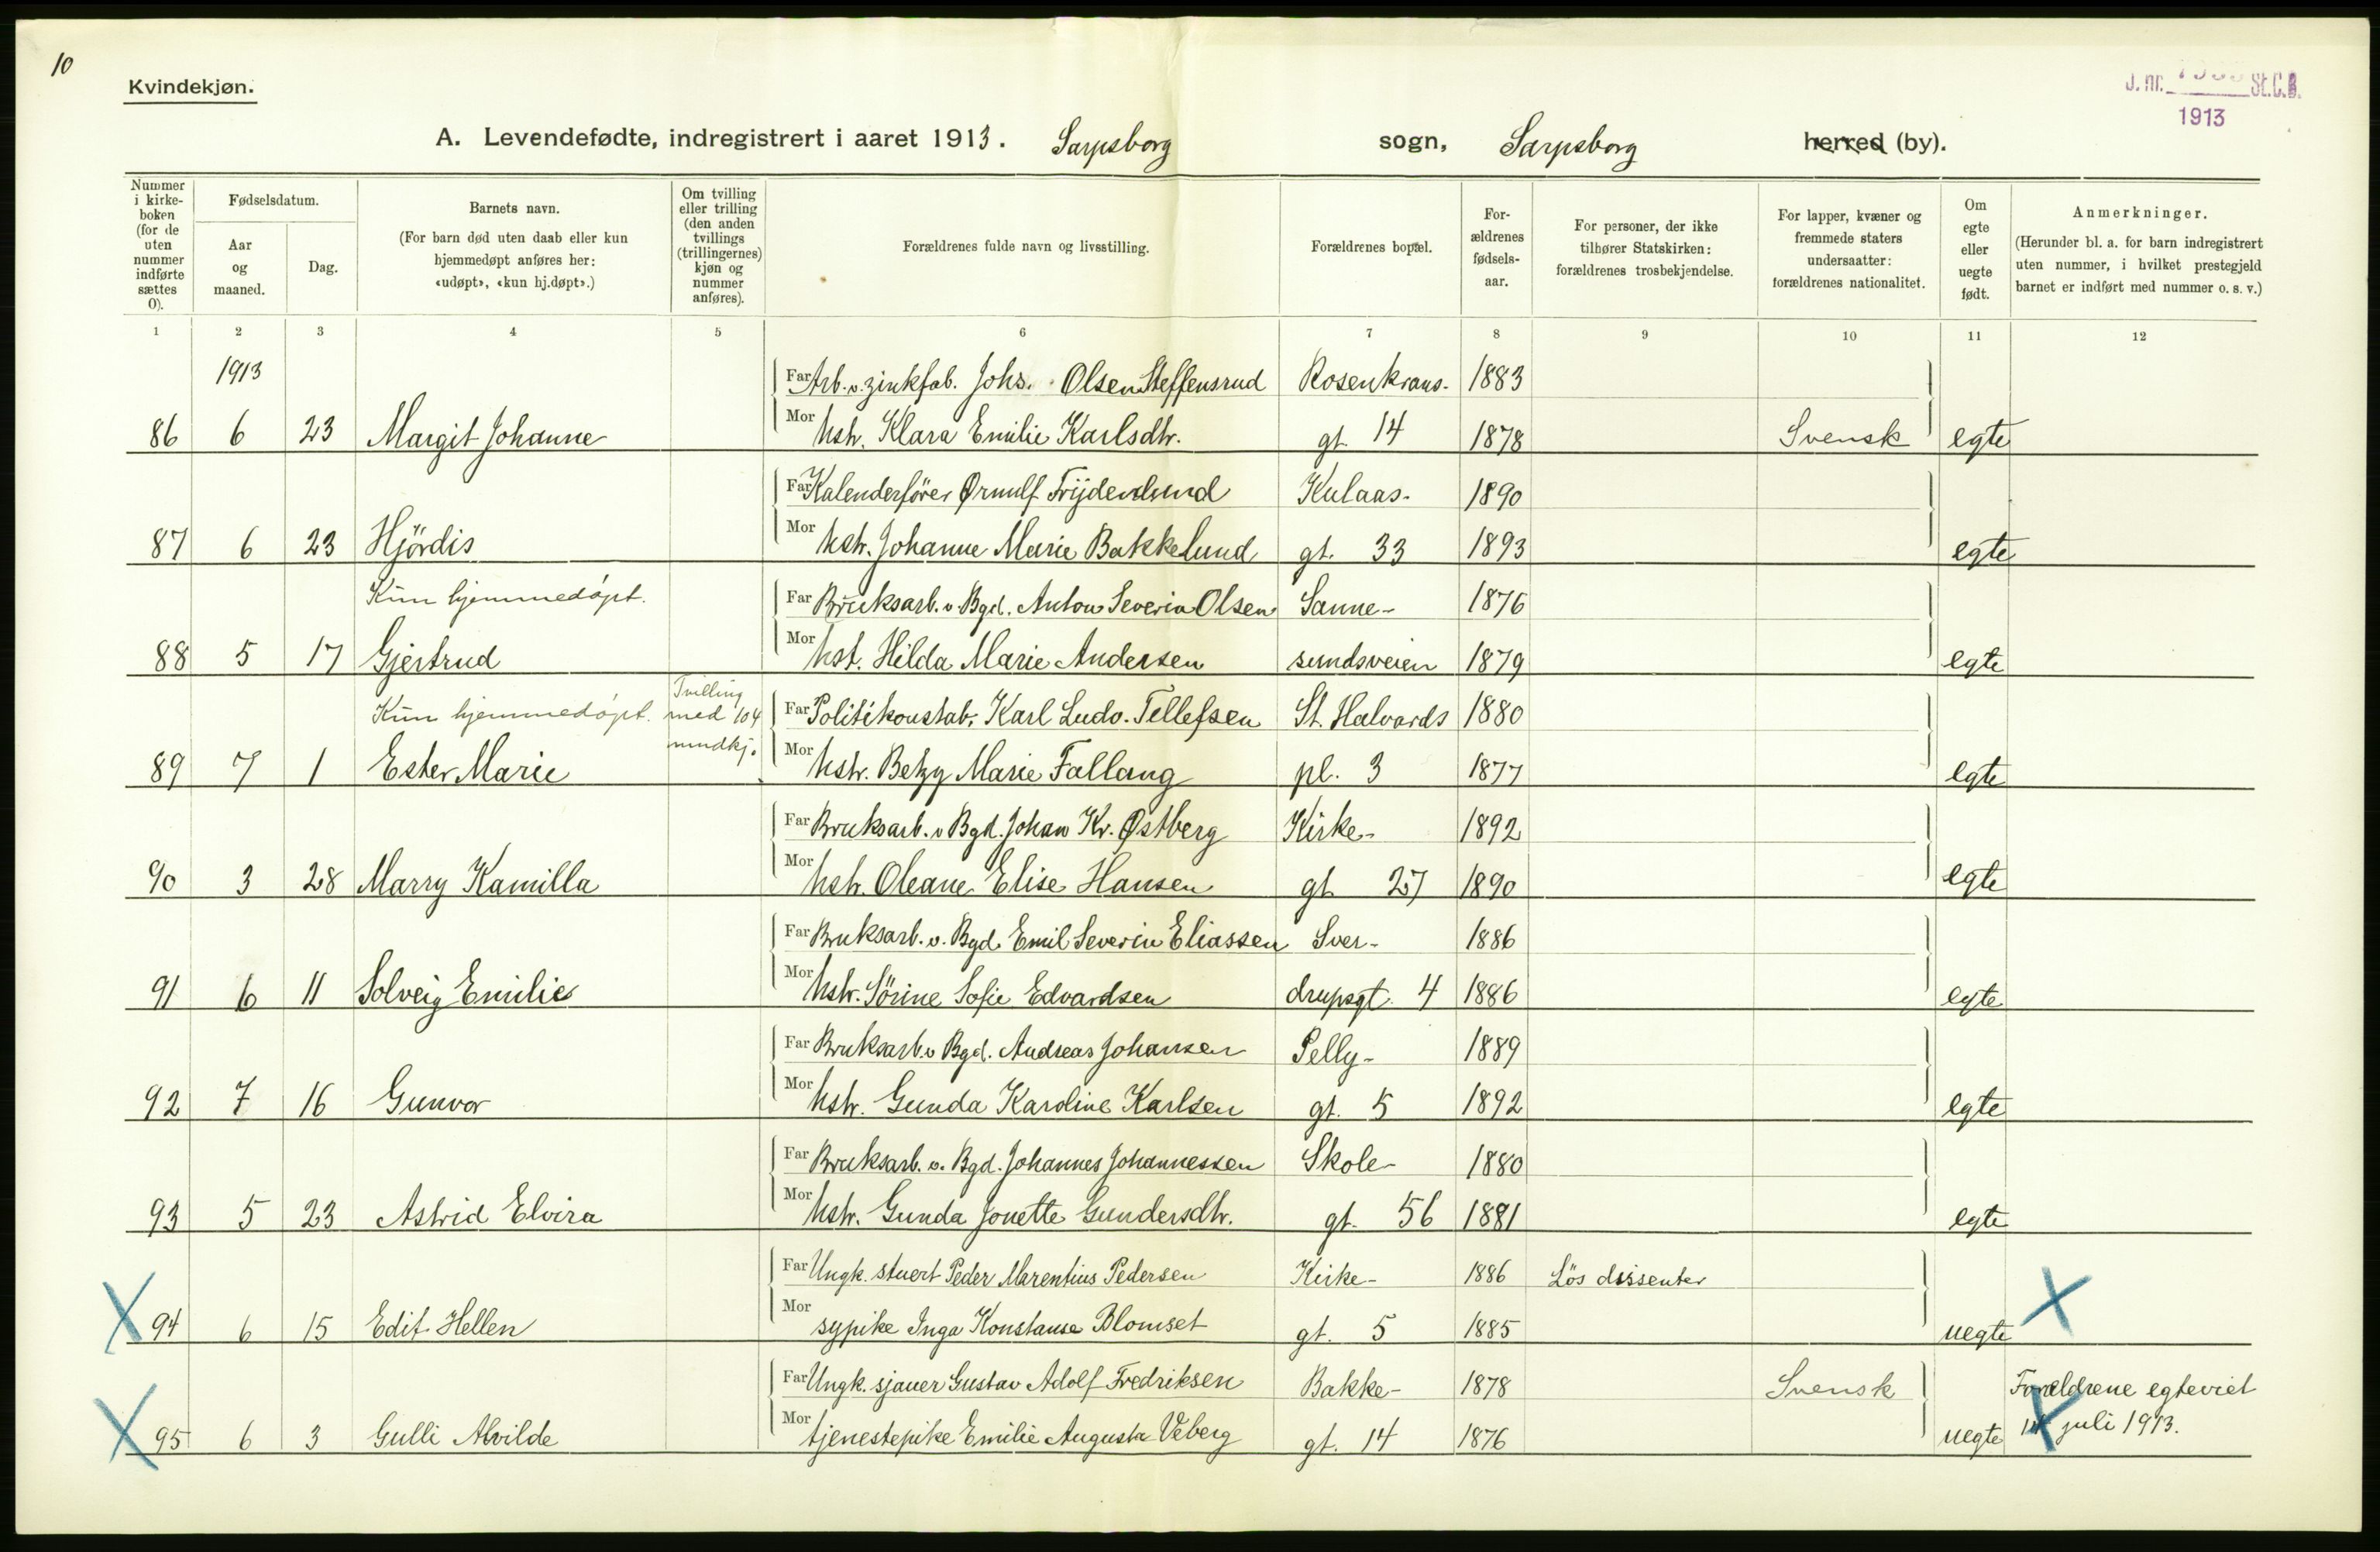 10
Kvindekjøn.
J. nr. St.C.B.
1913
A. Levendefødte, indregistrert i aaret 1913. Sarpsborg sogn, Sarpsborg herred (by).
Nummer i kirkeboken (for de uten nummer indførte sættes 0).
Fødselsdatum.
Aar og maaned.
Dag.
Barnets navn.
(For barn død uten daab eller kun hjemmedøpt anføres her: «udøpt», «kun hj.døpt».)
Om tvilling eller trilling (den anden tvillings (trillingernes) kjøn og nummer anføres).
Forældrenes fulde navn og livsstilling.
Forældrenes bopæl.
Forældrenes fødselsaar.
For personer, der ikke tilhører Statskirken: forældrenes trosbekjendelse.
For lapper, kvæner og fremmede staters undersaatter: forældrenes nationalitet.
Om egte eller uegte født.
Anmerkninger.
(Herunder bl. a. for barn indregistrert uten nummer, i hvilket prestegjeld barnet er indført med nummer o. s. v.)
1 2 3 4 5 6 7 8 9 10 11 12
1913 Far Arb. v. zinkfab. Johs. Olsen Steffensrud Rosenkrans- 1883
86 6 23 Margit Johanne Mor hstr. Klara Emilie Karlsdtr. gt. 14 1878 Svensk egte
Far Kalenderförer Ørnulf Trijdenlund Kulaas- 1890
87 6 23 Hjördis Mor hstr. Johanne Marie Bakkelund gt. 33 1893 egte
Kun hjemmedöpt. Far Bruksarb. v. Bgd. Anton Severin Olsen Sanne- 1876
88 5 17 Gjertrud Mor hst. Hilda Marie Andersen sundsveien 1879 egte
Kun hjemmedöpt. Tvilling med 104 mndkj. Far Politikonstab. Karl Ludv. Tellefsen St. Halvards 1880
89 7 1 Ester Marie Mor hstr. Betzy Marie Fallang pl. 3 1877 egte
Far Bruksarb. v Bgd. Johan Kr. Østberg Kirke- 1892
90 3 28 Marry Kamilla Mor hstr. Oleane Elise Hansen gt 27 1890 egte
Far Bruksarb. v. Bgd. Emil Severin Eliassen Sver- 1886
91 6 11 Solveig Emilie Mor hstr. Sörine Sofie Edvardsen drupsgt. 4 1886 egte
Far Bruksarb. v Bgd. Andreas Johansen Pelly- 1889
92 7 16 Gunvor Mor hstr. Gunda Karoline Karlsen gt. 5 1892 egte
Far Bruksarb. v. Bgd. Johannes Johannessen Skole- 1880
93 5 23 Astrid Elvira Mor hstr. Gunda Jonette Gundersdtr. gt. 56 1881 egte
Far Ungk. stuert Peder Marentius Pedersen Kirke- 1886 Lös dissenter
X 94 6 15 Edit Hellen Mor sypike Inga Konstanse Blomset gt. 5 1885 uegte X
Far Ungk. sjauer Gustav Adolf Fredriksen Bakke- 1878 Svensk Forældrene egteviet
X 95 6 3 Gulli Alvilde Mor tjenestepike Emilie Augusta Veberg gt. 14 1876 uegte X juli 1913.